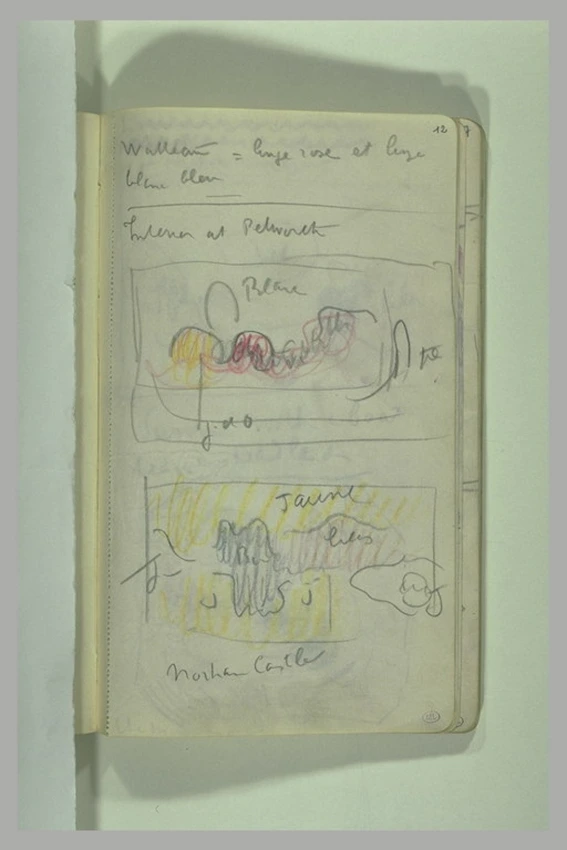 12 7
Watteau = linge rose et linge
blanc bleu
Interior at Petworth
Blanc
Jaune
lilas
B
J J J
Norham Castle